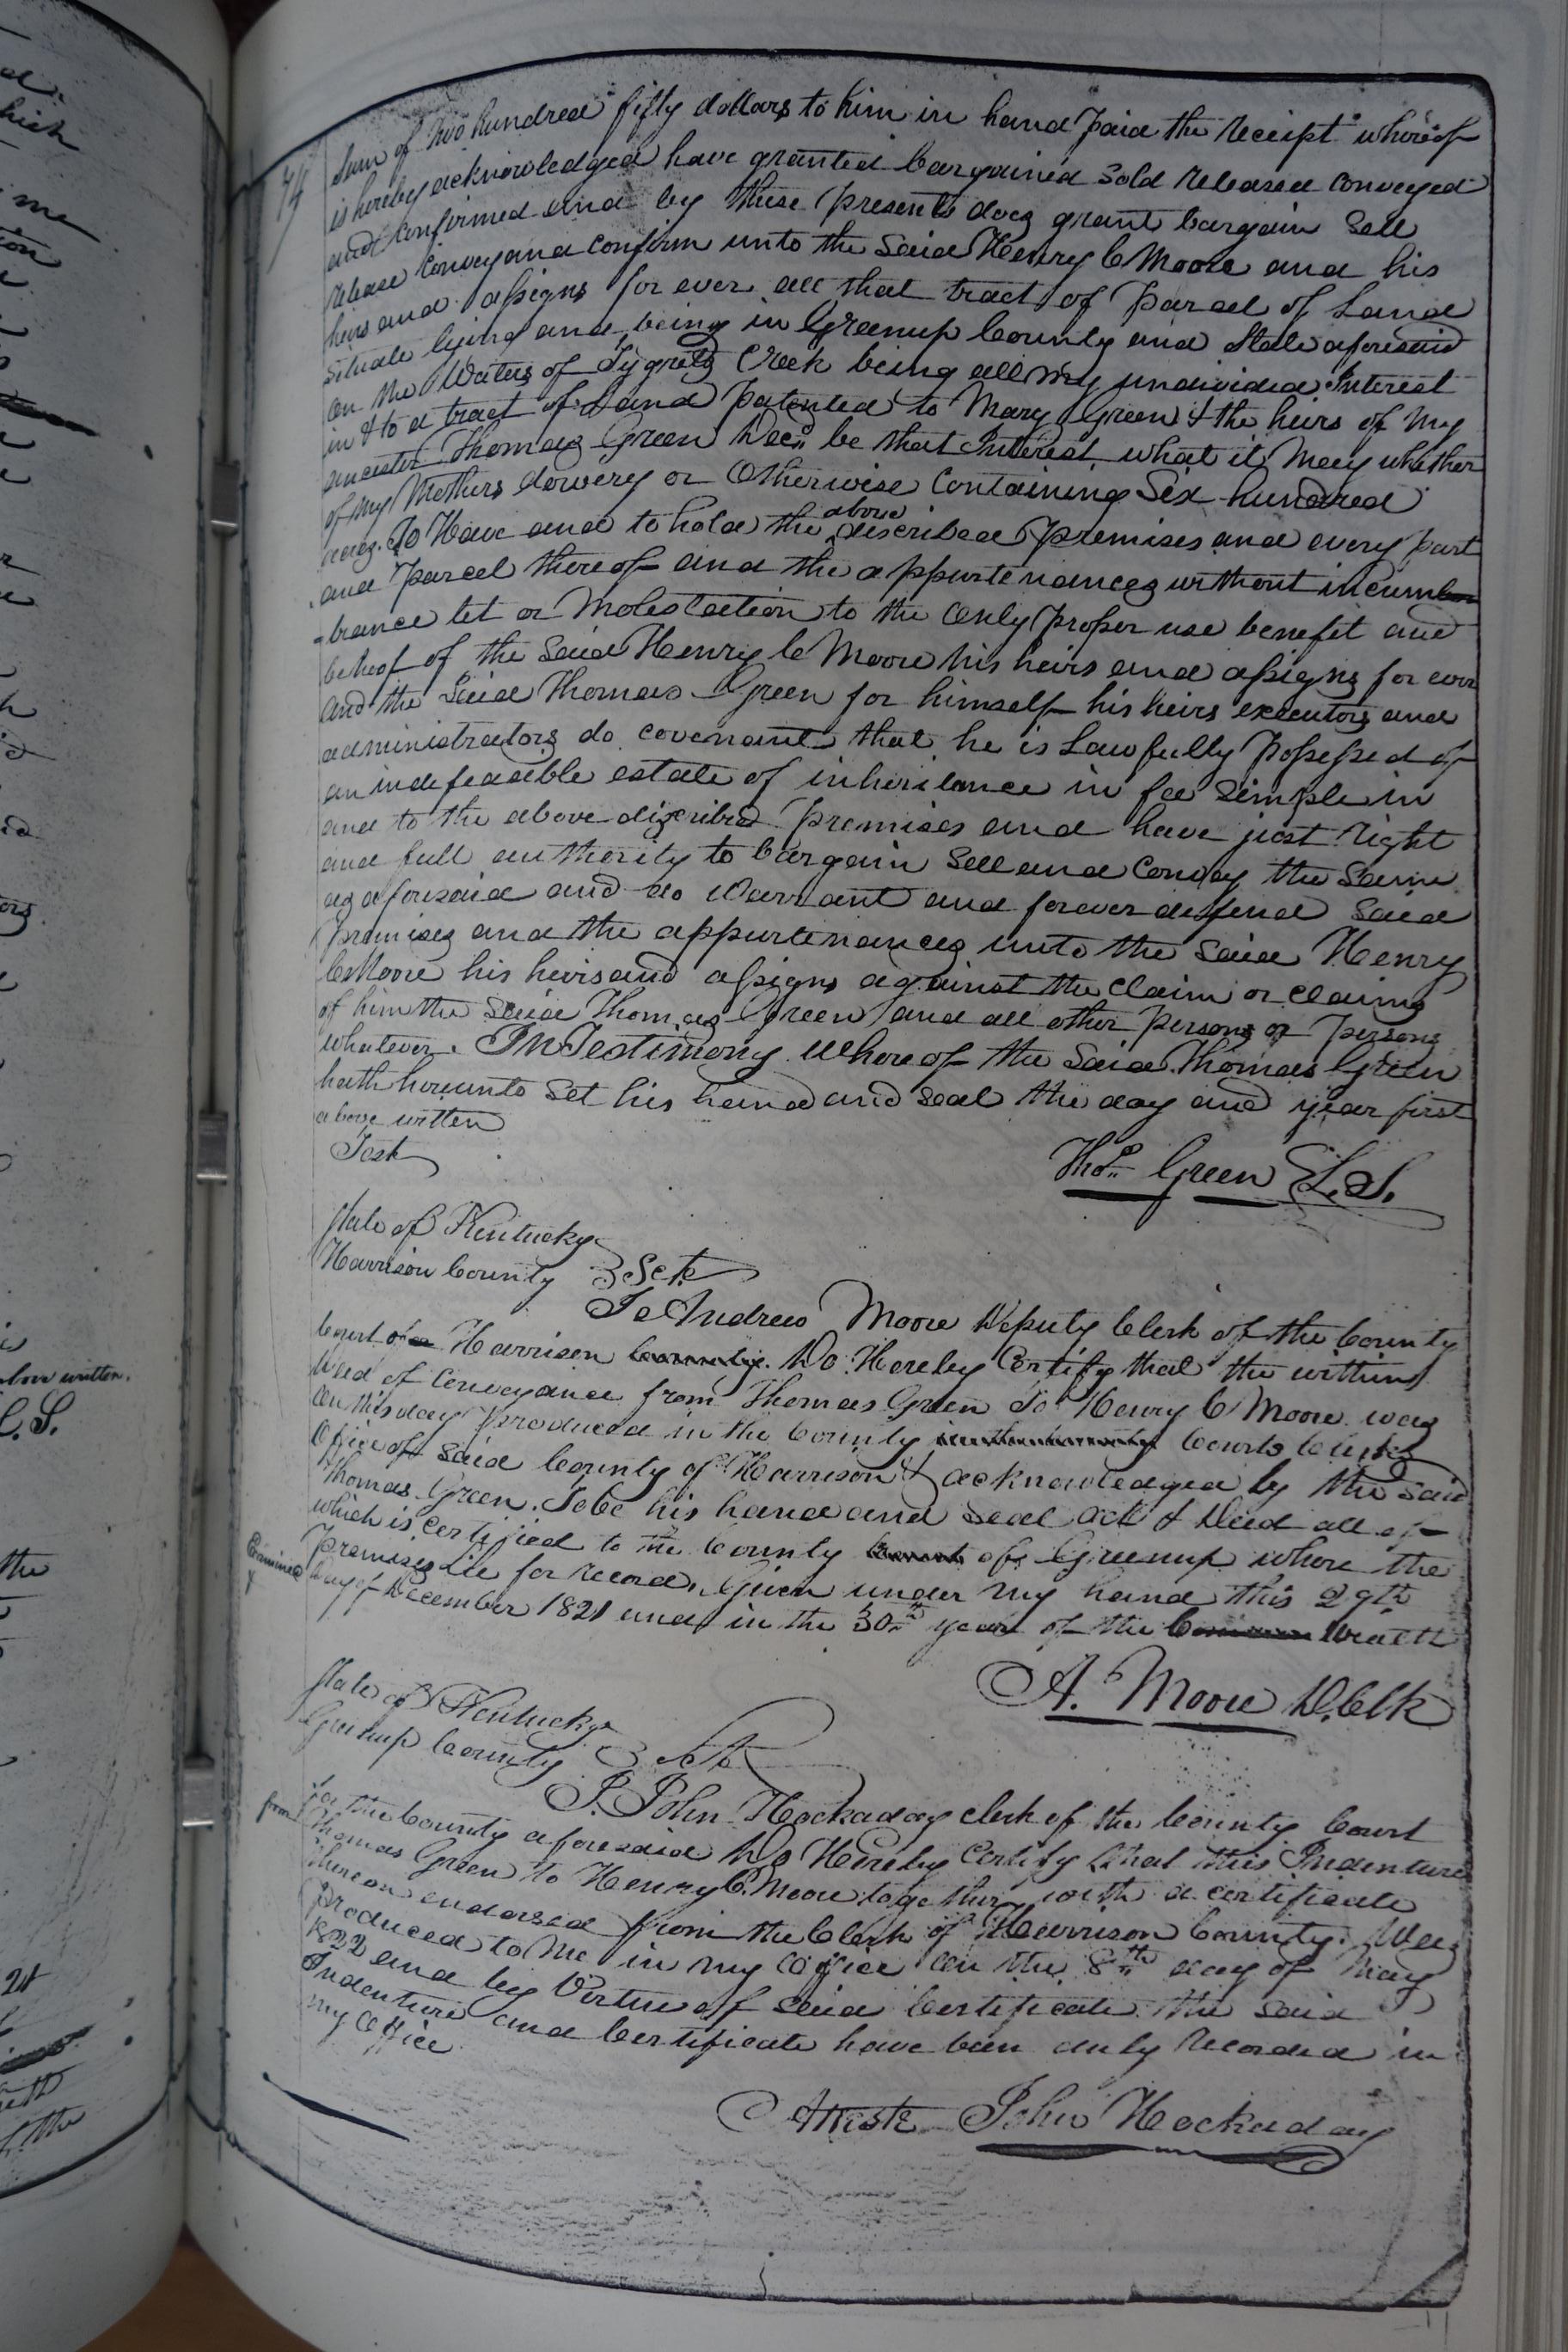 74
Sum of two hundred fifty dollars to him in hand paid the receipt whereof
is hereby acknowledged have granted bargained sold released conveyed
and confirmed and by these presents does grant bargain sell
release convey and confirm unto the said Henry C Moore and his
heirs and assigns for ever all that tract of parcel of Land
situate lying and being in Greenup County and State aforesaid
on the Waters of Tygrets Creek being all my undivided Interest
in & to a tract of Land patented to Mary Green & the heirs of my
ancestor Thomas Green Decd. be that Interest what it May whether
of my Mothers dowery or Otherwise Containing Six hundred
acres. To Have and to hold the above described premises and every part
and parcel thereof and the appurtenances without incum
brance let or Molestaction to the Only proper use benefit and
behoof of the said Henry C Moore his heirs and assigns for ever
And the Said Thomas Green for himself his heirs executors and
administrators do covenant that he is Lawfully possessed of
an indefeasible estate of inheritance in fee Simple in
and to the above discribed premises and have just right
and full authority to bargain Sell and Convey the Same
as aforesaid and do Warrant and forever defend said
premises and the appurtenances unto the said Henry
C Moore his heirs and assigns against the Claim or claims
of him the said Thomas Green and all other persons or persons
whatever. In Testimony Whereof the said Thomas Green
hath hereunto Set his hand and seal the day and year first
above written
Test
Thos. Green L.S.
State of Kentucky
Harrison County Sct.
I Andrew Moore Deputy Clerk of the County
Court of Harrison County. Do Hereby Certify that the within
Deed of Conveyance from Thomas Green To Henry C Moore was
on this day produced in the County Courts Clerks
Office of said County of Harrison & acknowledged by the said
Thomas Green. To be his hand and seal act & Deed all of
which is Certified to the County Court of Greenup where the
premises Lie for record. Given under my hand this 29th
Examined
Day of December 1821 and in the 30th year of the Common Wealth
A. Moore D. Clk
State of Kentucky
Greenup County Sct.
I. John Hockaday clerk of the County Court
for the County aforesaid Do Hereby Certify that this Indenture
from Thomas Green to Henry C. Moore together with a certificate
thereon endorsed from the Clerk of Harrison County. Was
produced to Me in my Office on the 8th day of May
1822 and by Virtue of said Certificate the said
Indenture and Certificate have been duly Recorded in
my Office
Atteste John Hockaday
me
above written.
L.S.
the